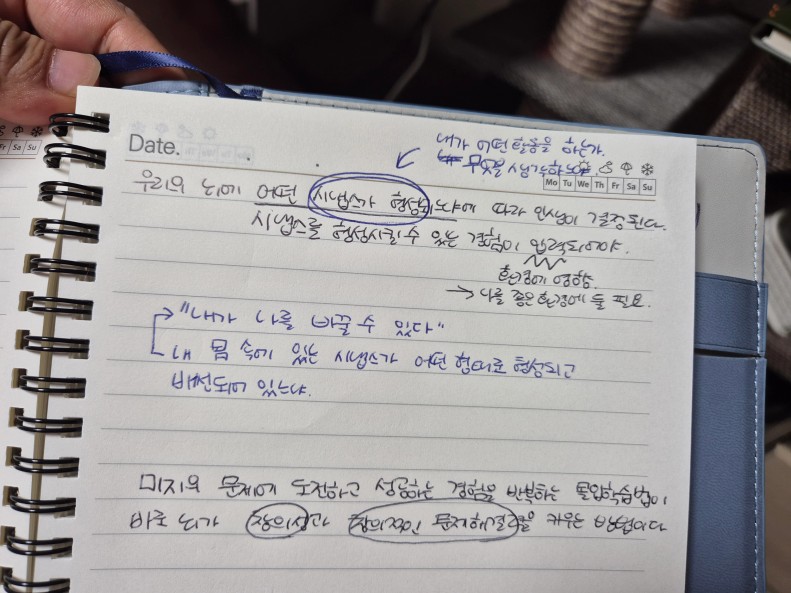 Date.
내가 어떤 활동을 하는가.
무엇을 생각하느냐
Mo Tu We Th Fr Sa Su
Fr Sa Su
우리의 뇌에 어떤 시냅스가 형성되느냐에 따라 인생이 결정된다.
시냅스를 형성시킬 수 있는 경험이 입력되어야.
환경에 영향.
→ 나를 좋은 환경에 둘 필요.
"내가 나를 바꿀 수 있다"
내 몸 속에 있는 시냅스가 어떤 형태로 형성되고
배선되어 있느냐.
미지의 문제에 도전하고 성공하는 경험을 반복하는 몰입학습법이
바로 뇌가 창의성과 창의적인 문제해결력을 키우는 방법이다